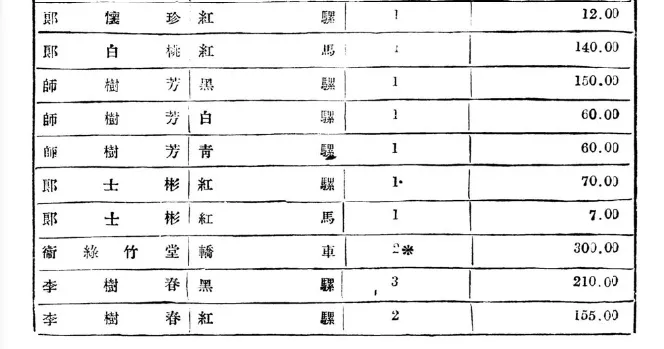 鄖懷珍 紅騾 1 12.00
鄖白桃 紅馬 1 140.00
師樹芳 黑騾 1 150.00
師樹芳 白騾 1 60.00
師樹芳 青騾 1 60.00
鄖士彬 紅騾 1 70.00
鄖士彬 紅馬 1 7.00
衞綠竹堂 轎車 2※ 300.00
李樹春 黑騾 3 210.00
李樹春 紅騾 2 155.00